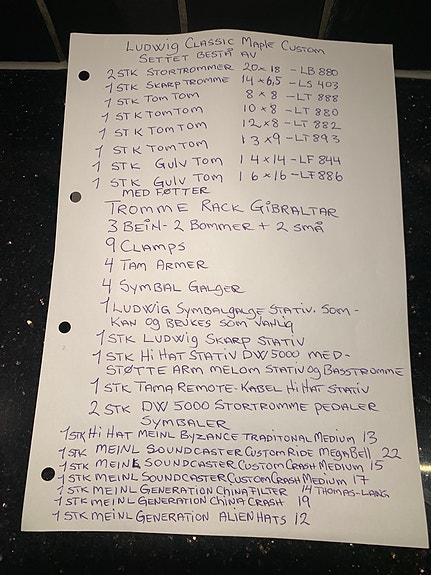 LUDWIG CLASSIC MAPLE CUSTOM
SETTET BESTÅ AV
2 STK STORTROMMER 20 x 18 - LB 880
1 STK SKARP TROMME 14 x 6,5 - LS 403
1 STK TOM TOM 8 x 8 - LT 888
1 STK TOM TOM 10 x 8 - LT 880
1 STK TOM TOM 12 x 8 - LT 882
1 STK TOM TOM 13 x 9 - LT 893
1 STK GULV TOM 14 x 14 - LF 844
1 STK GULV TOM 16 x 16 - LF 886
MED FØTTER
TROMME RACK GIBRALTAR
3 BEIN - 2 BOMMER + 2 SMÅ
9 CLAMPS
4 TAM ARMER
4 SYMBAL GALGER
1 LUDWIG SYMBALGALGE STATIV. SOM -
KAN OG BEUKES SOM VANLIG
1 STK LUDWIG SKARP STATIV
1 STK HI HAT STATIV DW 5000 MED -
STØTTE ARM MELOM STATIV OG BASSTROMME
1 STK TAMA REMOTE - KABEL HI HAT STATIV
2 STK DW 5000 STORTROMME PEDALER
SYMBALER
1 STK HI HAT MEINL BYZANCE TRADITONAL MEDIUM 13
1 STK MEINL SOUNDCASTER CUSTOM RIDE MEGA BELL 22
1 STK MEINL SOUNDCASTER CUSTOM CRASH MEDIUM 15
1 STK MEINL SOUNDCASTER CUSTOM CRASH MEDIUM 17
1 STK MEINL GENERATION CHINA FILTER 14 THOMAS-LANG
1 STK MEINL GENERATION CHINA CRASH 19
1 STK MEINL GENERATION ALIEN HATS 12